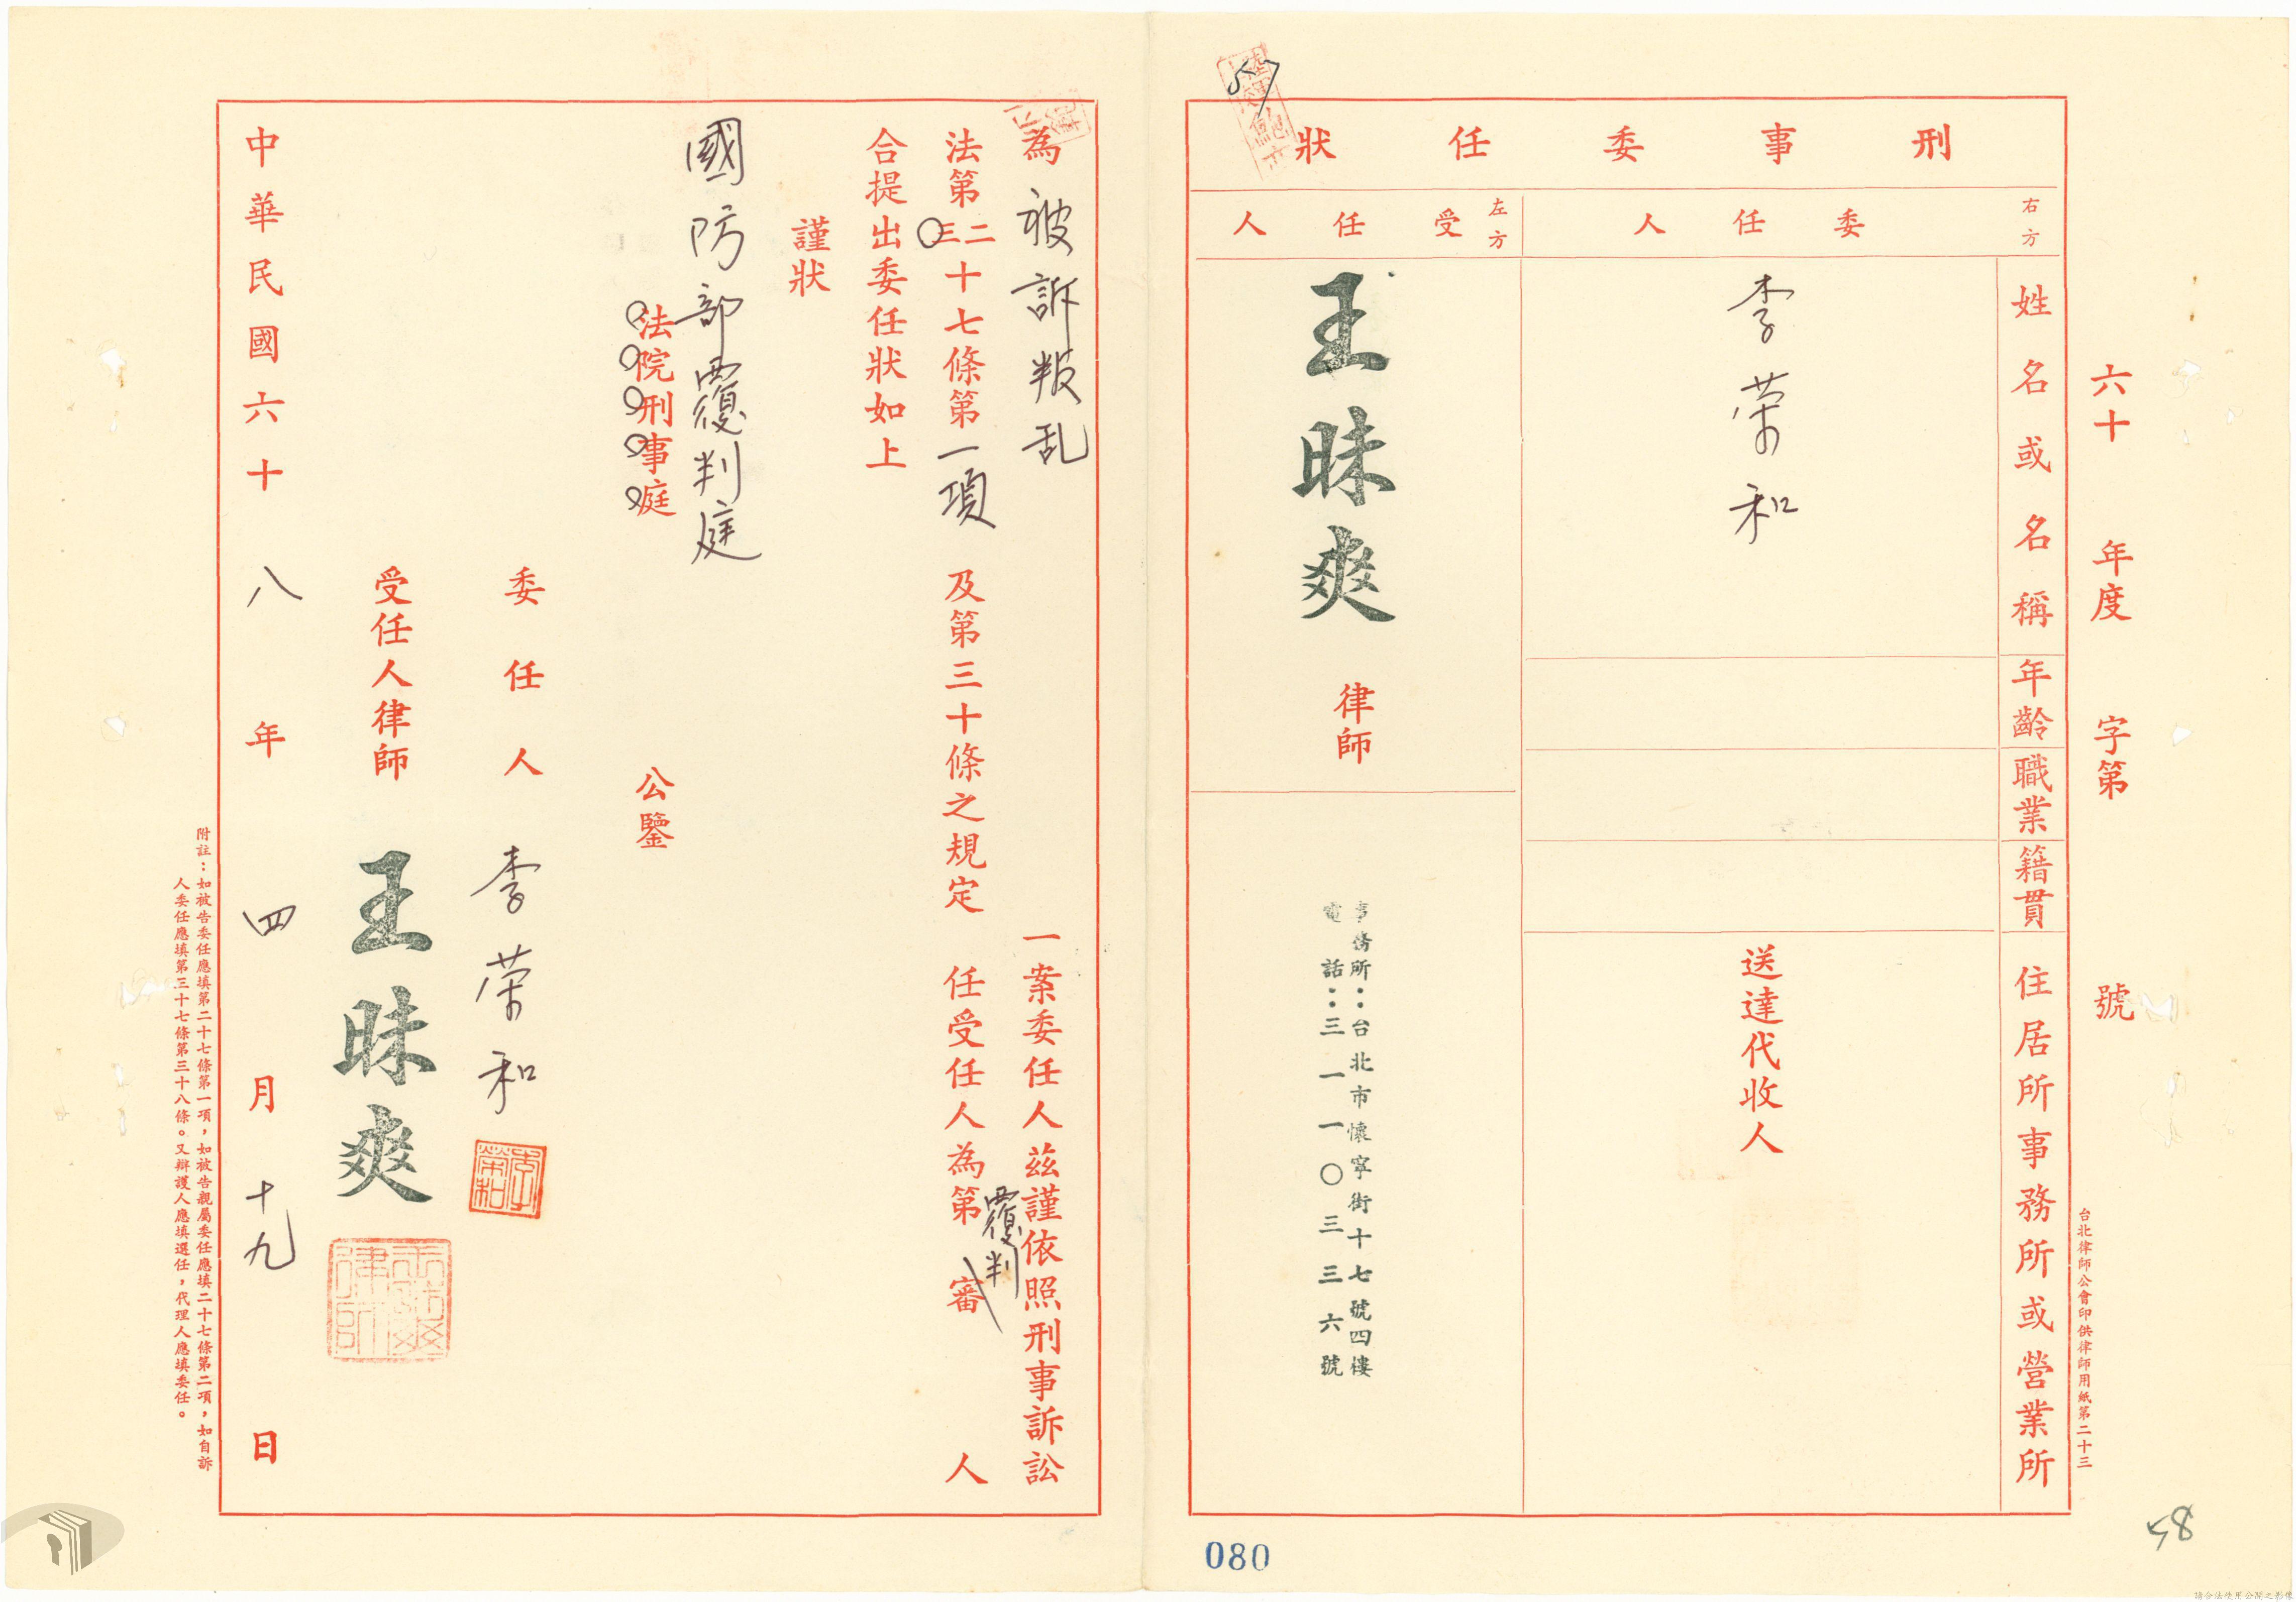 六十　年度　字第　號
台北律師公會印供律師用紙第二十三
刑事委任狀
右方
委任人
左方
受任人
姓名或名稱
年齡
職業
籍貫
住居所事務所或營業所
李荣和
送達代收人
王昧爽　律師
事務所：台北市懷寧街十七號四樓
電話：三一一〇三三六號
57
080
58
為　被訴叛乱　一案委任人茲謹依照刑事訴訟
法第二三十七條第一項　及第三十條之規定　任受任人為第　審　人
覆判
合提出委任狀如上
謹狀
國防部覆判庭
法院刑事庭　公鑒
委任人　李荣和
李榮和
受任人律師　王昧爽
中華民國六十八年四月十九日
附註：如被告委任應填第二十七條第一項，如被告親屬委任應填二十七條第二項，如自訴
人委任應填第三十七條第三十八條。又辯護人應填選任，代理人應填委任。
請合法使用公開之影像